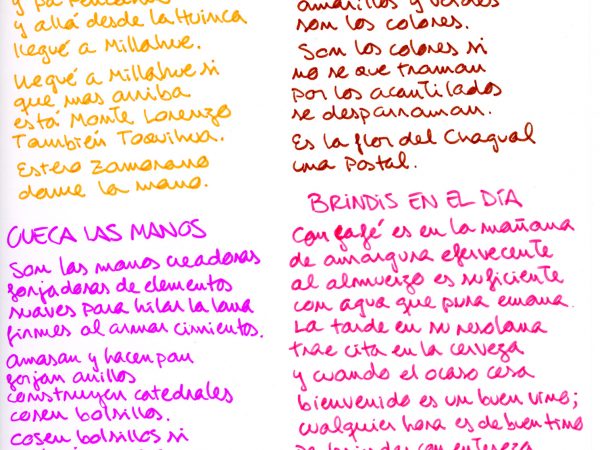 y pa Pencahue
y allá desde la Huinca
llegué a Millahue.
llegué a Millahue si
que mas arriba
está Monte Lorenzo
También Toquihua.
Estero Zamorano
dame la mano.
CUECA LAS MANOS
Son las manos creadoras
forjadoras de elementos
suaves para hilar la lana
firmes al armar cimientos.
amasan y hacen pan
forjan anillos
construyen catedrales
cosen bolsillos.
cosen bolsillos si
amarillos y verdes
son los colores.
Son los colores si
no se que traman
por los acantilados
se desparraman.
Es la flor del Chagual
una Postal.
BRINDIS EN EL DÍA
Con café es en la mañana
de amargura efervecente
al almuerzo es suficiente
con agua que pura emana
La tarde en su resolana
trae cita en la cerveza
y cuando el ocaso cesa
bienvenido es un buen vino;
cualquier hora es de buen tino